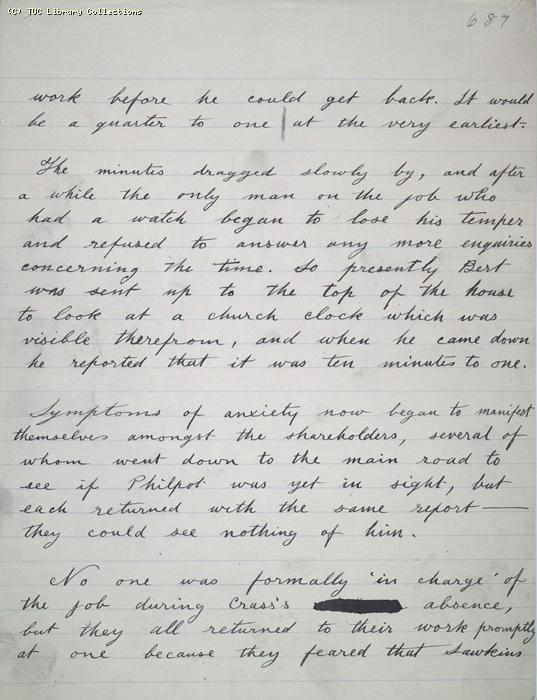 (C) TUC Library Collections
687
work before he could get back. It would
be a quarter to one at the very earliest.
The minutes dragged slowly by, and after
a while the only man on the job who
had a watch began to lose his temper
and refused to answer any more enquiries
concerning the time. So presently Bert
was sent up to the top of the house
to look at a church clock which was
visible therefrom, and when he came down
he reported that it was ten minutes to one.
Symptoms of anxiety now began to manifest
themselves amongst the shareholders, several of
whom went down to the main road to
see if Philpot was yet in sight, but
each returned with the same report —
they could see nothing of him.
No one was formally 'in charge' of
the job during Crass's absence,
but they all returned to their work promptly
at one because they feared that Sawkins